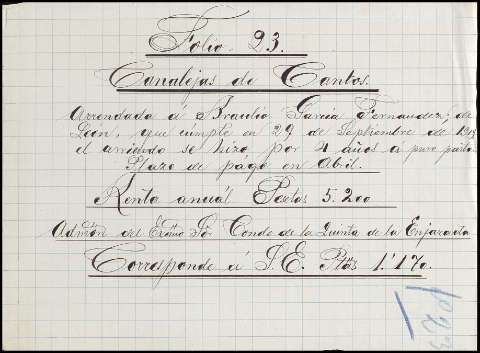 Folio. 23.
Canalejas de Cantos.
Arrendada á Braulio García Fernandez, de
León, que cumple en 29 de Septiembre de 1918
el arriendo se hizo por 4 años a puro pasto.
Plazo de págo en Abil.
Renta anuál Psetas 5.200
Admón del Exmo Sor Conde de la Quinta de la Enjarada
Corresponde á S.E. Ptas 1.170.